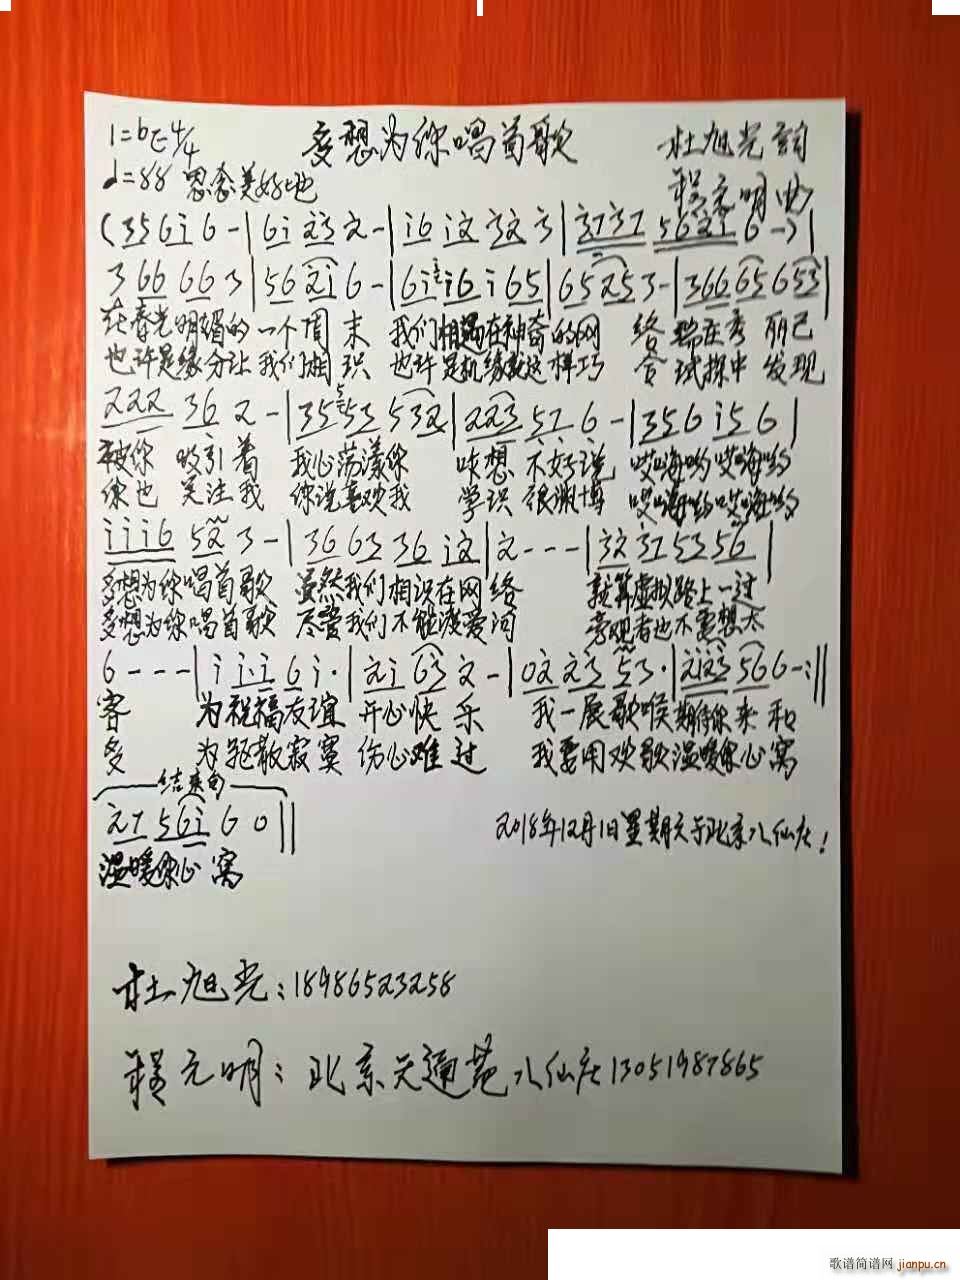 1=bE 4/4 多想为你唱首歌 杜旭光词
♩=88 思念美好地 程元明曲
(3 5 6 i 6 - | 6 i 2 3 2 - | i 6 i 2 3 2 3 | 3 1 3 1 5 6 2 1 6 -) |
3 6 6 6 6 3 | 5 6 2 i 6 - | 6 i i 6 i 6 5 | 6 5 2 5 3 - | 3 6 6 6 5 6 5 3 |
在春光明媚的一个周末 我们相遇在神奇的网 络 端庄秀 丽已
也许是缘分让我们相识 也许是机缘就这样巧 合 试探中 发现
2 2 2 3 6 2 - | 3 5 5 3 5 3 2 | 2 2 3 5 1 6 - | 3 5 6 i 5 6 |
被你 吸引着 我心荡漾你 咋想 不好说 哎嗨哟哎嗨哟
你也 关注我 你说喜欢我 学识 很渊博 哎嗨哟哎嗨哟
i i i 6 5 2 3 - | 3 6 6 3 3 6 i 2 | 2 - - - | 3 2 3 1 5 3 5 6 |
多想为你唱首歌 虽然我们相识在网络 就算虚拟路上一过
多想为你唱首歌 尽管我们不能谈爱河 旁观者也不要想太
6 - - - | i i i 6 i · | 2 i 6 3 2 - | 0 2 2 3 5 3 · | 2 i 2 3 5 6 6 - :||
客 为祝福友谊 开心快乐 我一展歌喉期待你来和
多 为驱散寂寞 伤心难过 我要用欢歌温暖你心窝
结束句
2 1 5 6 i 6 0 ||
温暖你心窝
2018年12月1日星期六于北京八仙庄!
杜旭光:18986523258
程元明:北京天通苑八仙庄13051987865
歌谱简谱网 jianpu.cn